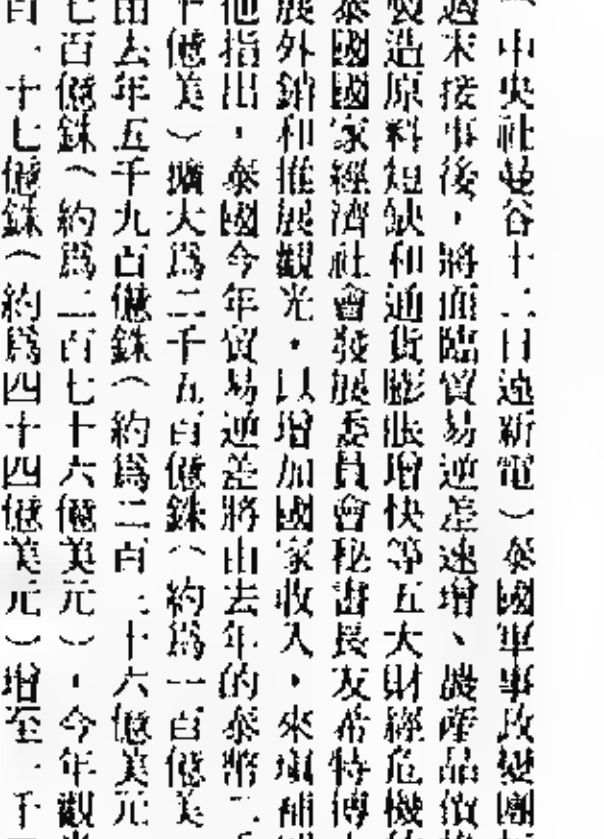 中央社曼谷十二日遠新電）泰國軍事政變團
週末接事後，將面臨貿易逆差速增、農產品價
製造原料短缺和通貨膨脹增快等五大財經危機
泰國國家經濟社會發展委員會秘書長友希特博
展外銷和推展觀光，以增加國家收入，來填補
他指出，泰國今年貿易逆差將由去年的泰幣二
十億美）擴大爲二千五百億銖（約爲一百億美
由去年五千九百億銖（約爲二百三十六億美元
七百億銖（約爲二百七十六億美元），今年觀
百一十七億銖（約爲四十四億美元）增至一千